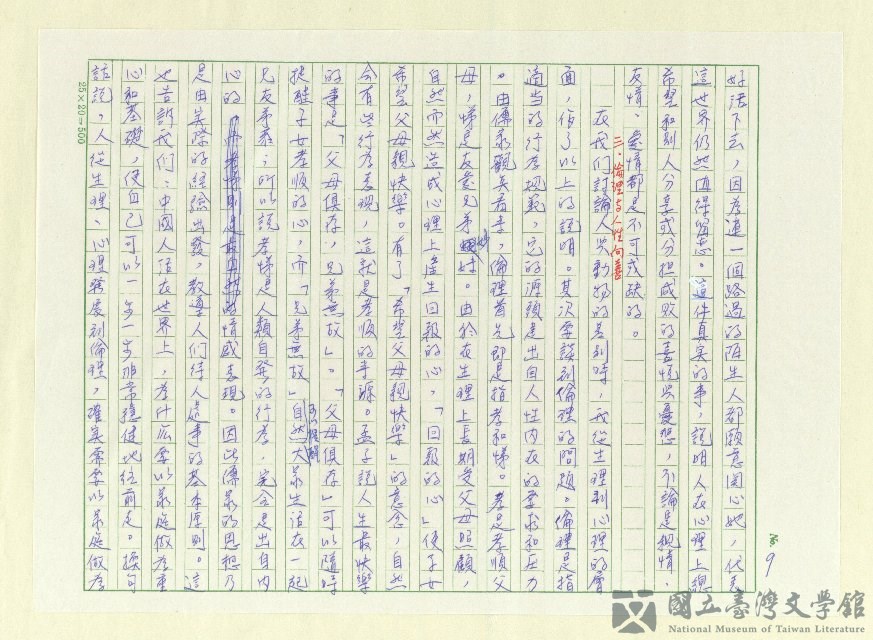 好活下去，因為連一個路過的陌生人都願意關心她，代表
這世界仍然值得留戀。這件真實的事，說明人在心理上總
希望和別人分享或分擔成敗的喜悅與憂愁，不論是親情、
友情、愛情都是不可或缺的。
三、倫理與人性向善
在我們討論人與動物的差別時，我從生理到心理的層
面，作了以上的說明。其次要談到倫理的問題。倫理是指
適當的行為規範，它的源頭是出自人性內在的要求和壓力
。由儒家觀點看來，倫理首先即是指孝和悌。孝是孝順父
母，悌是友愛兄弟姊妹。由於在生理上長期受父母照顧，
自然而然造成心理上產生回報的心，「回報的心」使子女
希望父母親快樂。有了「希望父母親快樂」的意念，自然
會有些行為表現，這就是孝順的來源。孟子說人生最快樂
的事是「父母俱存，兄弟無故」。「父母俱存」可以隨時
提醒子女孝順的心，而「兄弟無故」自然大家生活在一起
兄友弟恭；所以說孝悌是人類自發的行為，完全是出自內
心的情感表現。因此儒家的思想乃
是由實際的經驗出發，教導人們待人處事的基本原則。這
也告訴我們：中國人活在世界上，為什麼要以家庭做為重
心和基礎，使自己可以一步一步非常穩健地往前走。換句
話說，人從生理、心理發展到倫理，確實需要以家庭做為
25×20=500
9
國立臺灣文學館
National Museum of Taiwan Literature